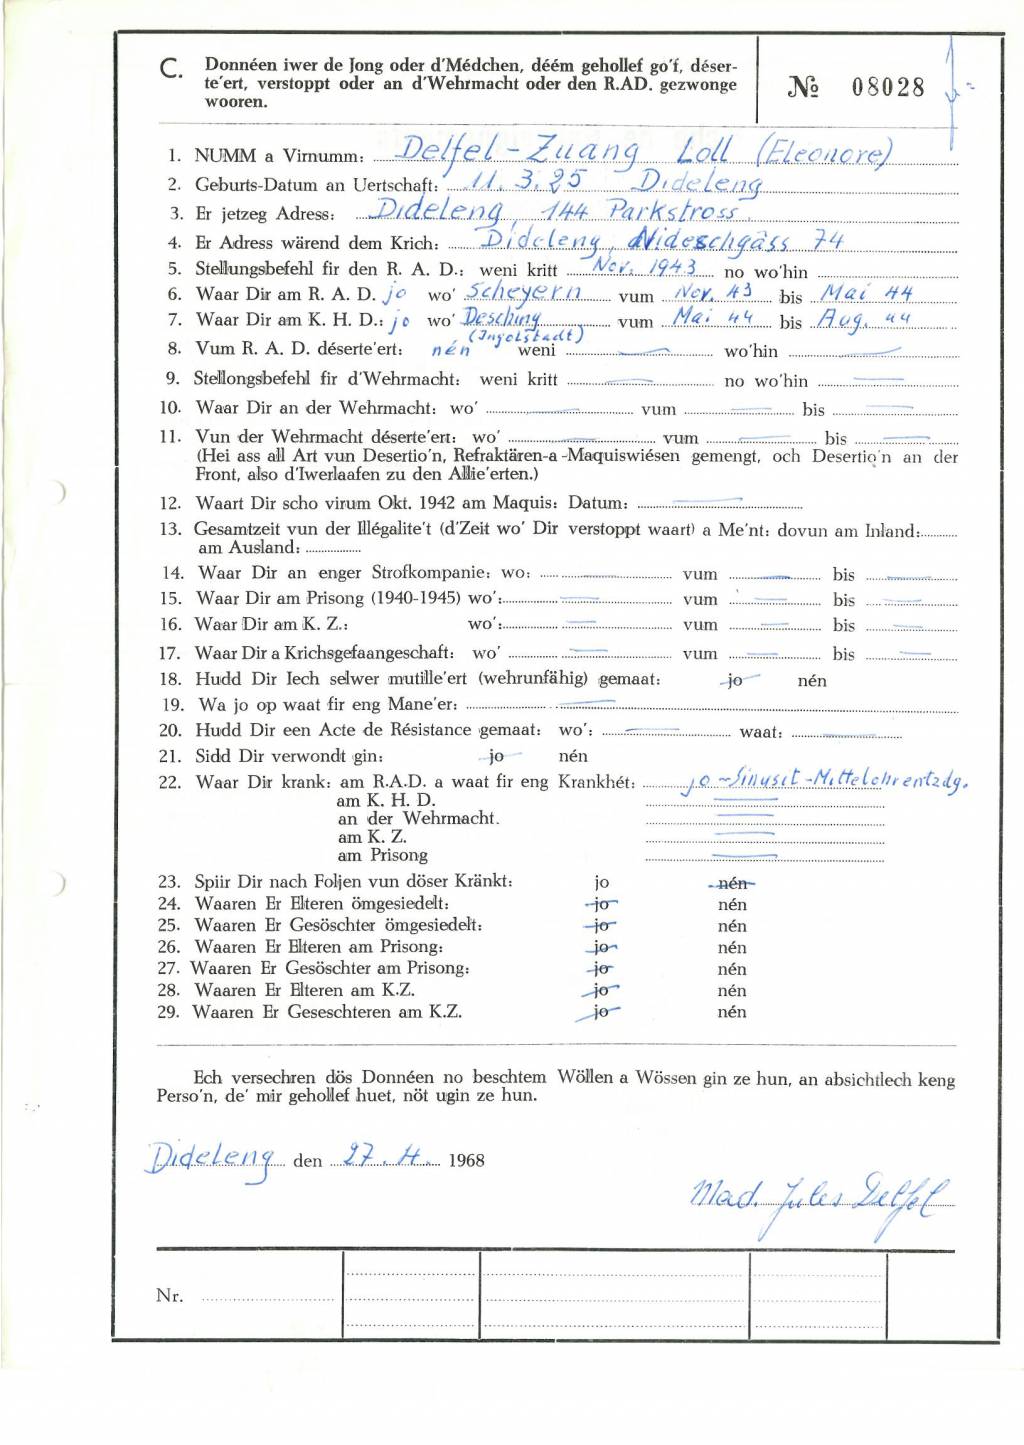 C. Donnéen iwer de Jong oder d'Médchen, déém gehollef go'f, déser-
te'ert, verstoppt oder an d'Wehrmacht oder den R.AD. gezwonge
wooren.
№ 08028
1. NUMM a Virnumm: Delfel-Zuang Loll (Eleonore)
2. Geburts-Datum an Uertschaft: 11.3.25 Dideleng
3. Er jetzeg Adress: Dideleng, 144 Parkstross.
4. Er Adress wärend dem Krich: Dideleng, Nideschgâss 74
5. Stellungsbefehl fir den R. A. D.: weni kritt Nov. 1943 no wo'hin
6. Waar Dir am R. A. D. jo wo' Scheyern vum Nov. 43 bis Mai 44
7. Waar Dir am K. H. D.: jo wo' Desching vum Mai 44 bis Aug. 44
(Ingolstadt)
8. Vum R. A. D. déserte'ert: nén weni — wo'hin —
9. Stellongsbefehl fir d'Wehrmacht: weni kritt — no wo'hin —
10. Waar Dir an der Wehrmacht: wo' — vum — bis —
11. Vun der Wehrmacht déserte'ert: wo' — vum — bis —
(Hei ass all Art vun Desertio'n, Refraktären-a -Maquiswiésen gemengt, och Desertio'n an der
Front, also d'Iwerlaafen zu den Allie'erten.)
12. Waart Dir scho virum Okt. 1942 am Maquis: Datum: —
13. Gesamtzeit vun der Illégalite't (d'Zeit wo' Dir verstoppt waart) a Me'nt: dovun am Inland:
am Ausland:
14. Waar Dir an enger Strofkompanie: wo: — vum — bis —
15. Waar Dir am Prisong (1940-1945) wo': — vum — bis —
16. Waar Dir am K. Z.: wo': — vum — bis —
17. Waar Dir a Krichsgefaangeschaft: wo' — vum — bis —
18. Hudd Dir Iech selwer mutille'ert (wehrunfähig) gemaat: jo nén
19. Wa jo op waat fir eng Mane'er: —
20. Hudd Dir een Acte de Résistance gemaat: wo': — waat: —
21. Sidd Dir verwondt gin: jo nén
22. Waar Dir krank: am R.A.D. a waat fir eng Krankhét: jo - Sinusit-Mittelohrentzdg.
am K. H. D. —
an der Wehrmacht. —
am K. Z. —
am Prisong —
23. Spiir Dir nach Foljen vun döser Kränkt: jo nén
24. Waaren Er Elteren ömgesiedelt: jo nén
25. Waaren Er Gesöschter ömgesiedelt: jo nén
26. Waaren Er Elteren am Prisong: jo nén
27. Waaren Er Gesöschter am Prisong: jo nén
28. Waaren Er Elteren am K.Z. jo nén
29. Waaren Er Geseschteren am K.Z. jo nén
Ech versechren dös Donnéen no beschtem Wöllen a Wössen gin ze hun, an absichtlech keng
Perso'n, de' mir gehollef huet, nöt ugin ze hun.
Dideleng den 27. 4. 1968
Mad. Jules Delfel
Nr.